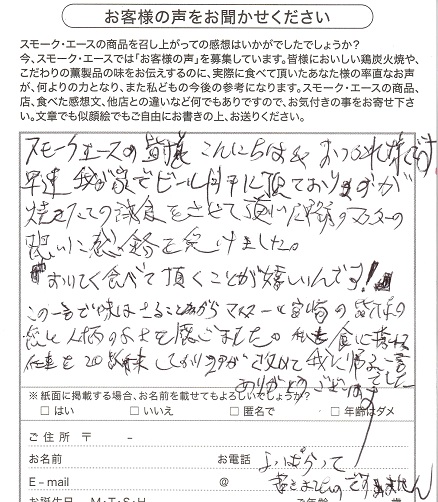 お客様の声をお聞かせください
スモーク・エースの商品を召し上がっての感想はいかがでしたでしょうか?
今、スモーク・エースでは「お客様の声」を募集しています。皆様においしい鶏炭火焼や、
こだわりの薫製品の味をお伝えするのに、実際に食べて頂いたあなた様の率直なお声
が、何よりの力となり、また私どもの今後の参考になります。スモーク・エースの商品、
店、食べた感想文、他店との違いなど何でもありですので、お気付きの事をお寄せ下さ
い。文章でも似顔絵でもご自由にお書きの上、お送りください。
スモークエースの皆様 こんにちは おつかれ様です
早速 我が家でビール片手に頂いておりますが
焼きたての試食をさせて頂いた マスターの
思いに感銘を受けました。
"おいしく食べて頂くことが嬉しいんです!!"
この一言で味はさることながらマスターと宮崎の皆様の
と人柄の を感じました。 食に携わる
仕事を しておりますが 改めて我に帰る一言
でした
ありがとうございます
※紙面に掲載する場合、お名前を載せてもよろしいでしょうか?
□ はい □ いいえ □ 匿名で □ 年齢はダメ
ご住所 〒 －
お名前 お電話 よっぱらって
E－mail @ すみません
お誕生日 M・T・S・H ご年齢 歳